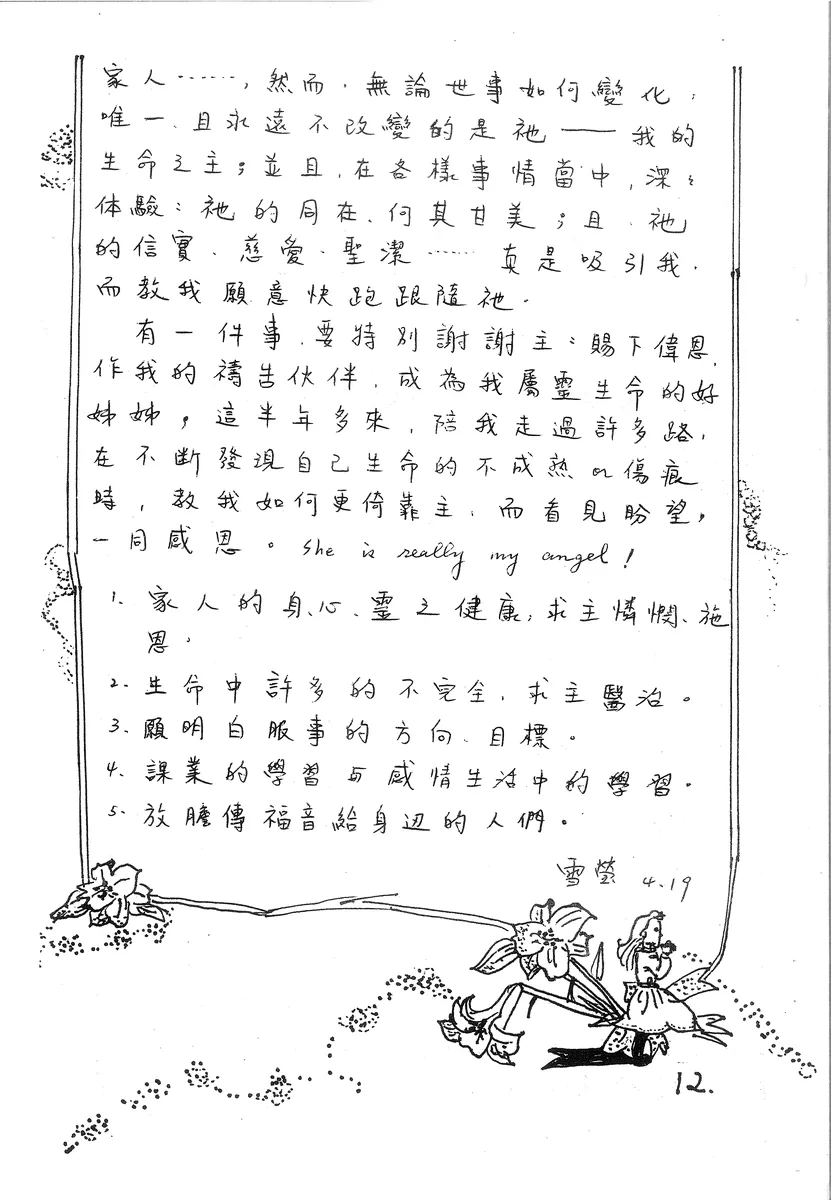 家人……，然而，無論世事如何變化，
唯一、且永遠不改變的是祂——我的
生命之主；並且，在各樣事情當中，深深
體驗：祂的同在、何其甘美；且、祂
的信實、慈愛、聖潔…… 真是吸引我，
而教我願意快跑跟隨祂。
有一件事、要特別謝謝主：賜下偉恩，
作我的禱告伙伴，成為我屬靈生命的好
姊姊，這半年多來，陪我走過許多路，
在不斷發現自己生命的不成熟 or 傷痕
時，教我如何更倚靠主、而看見盼望，
一同感恩。She is really my angel！
1. 家人的身、心、靈之健康，求主憐憫、施
恩。
2. 生命中許多的不完全，求主醫治。
3. 願明白服事的方向、目標。
4. 課業的學習与感情生活中的學習。
5. 放膽傳福音給身边的人們。
雪瑩 4.19
12.